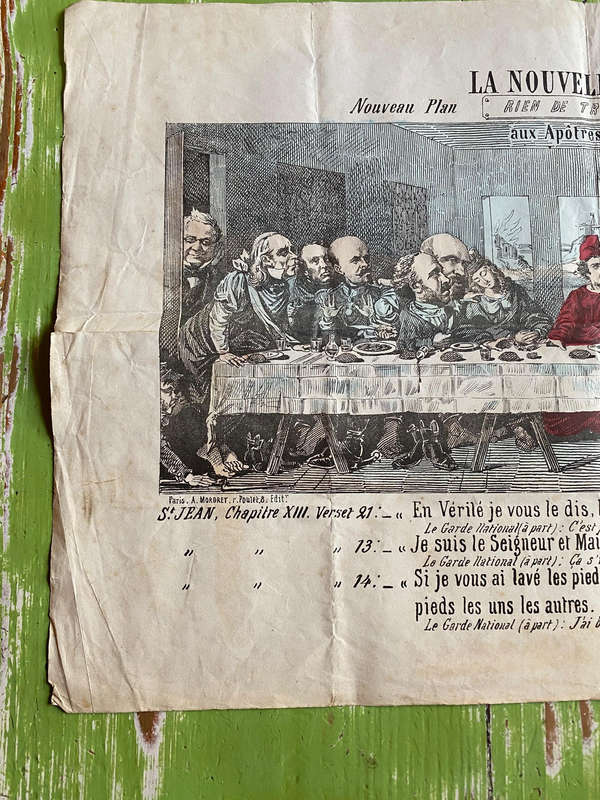 LA NOUVEL
Nouveau Plan RIEN DE TR
aux Apôtres
Paris. A. MORDRET, r. Poulet, 8. Edit.r
St JEAN, Chapitre XIII. Verset 21:_ « En Vérité je vous le dis,
Le Garde National (à part): C'est,
" " " 13:_ « Je suis le Seigneur et Mai
Le Garde National (à part): Ça s'
" " " 14:_ « Si je vous ai lavé les pied
pieds les uns les autres.
Le Garde National (à part): J'ai b